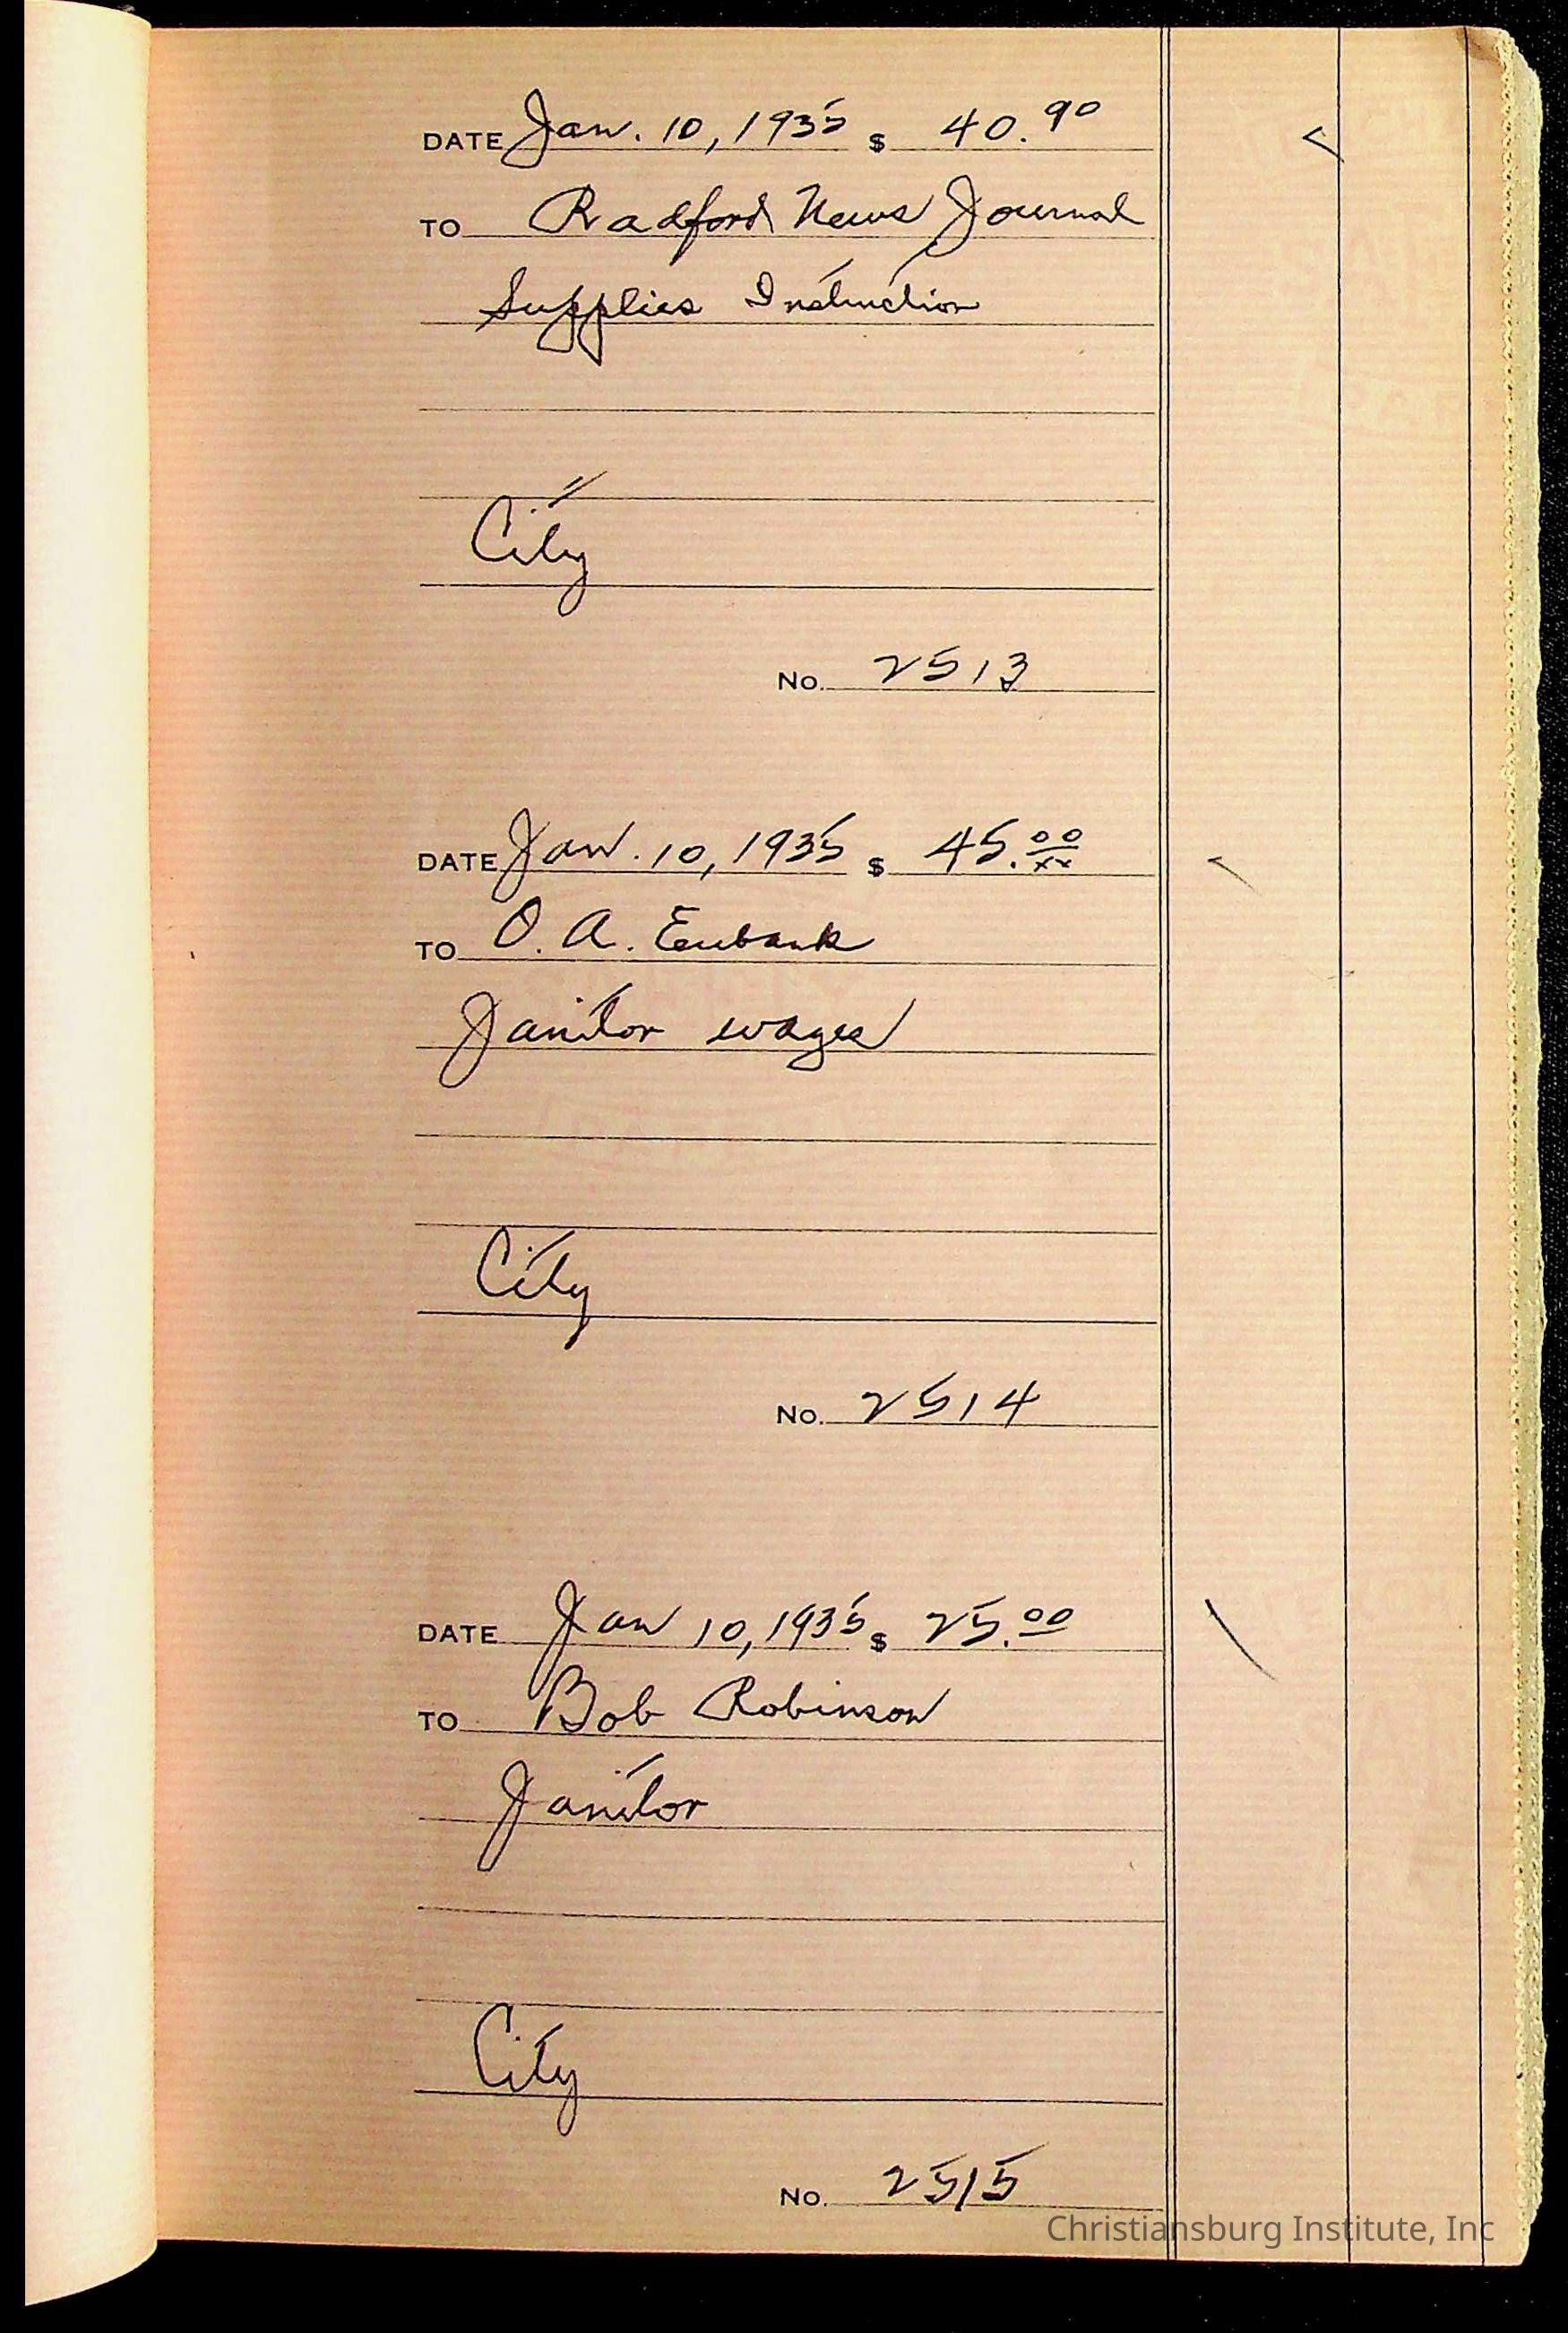 DATE Jan. 10, 1935 $ 40.90
TO Radford News Journal
Supplies Instruction
City
No. 2513
DATE Jan. 10, 1935 $ 45.00/xx
TO O. A. Eubank
Janitor wages
City
No. 2514
DATE Jan 10, 1935 $ 25.00
TO Bob Robinson
Janitor
City
No. 2515
Christiansburg Institute, Inc